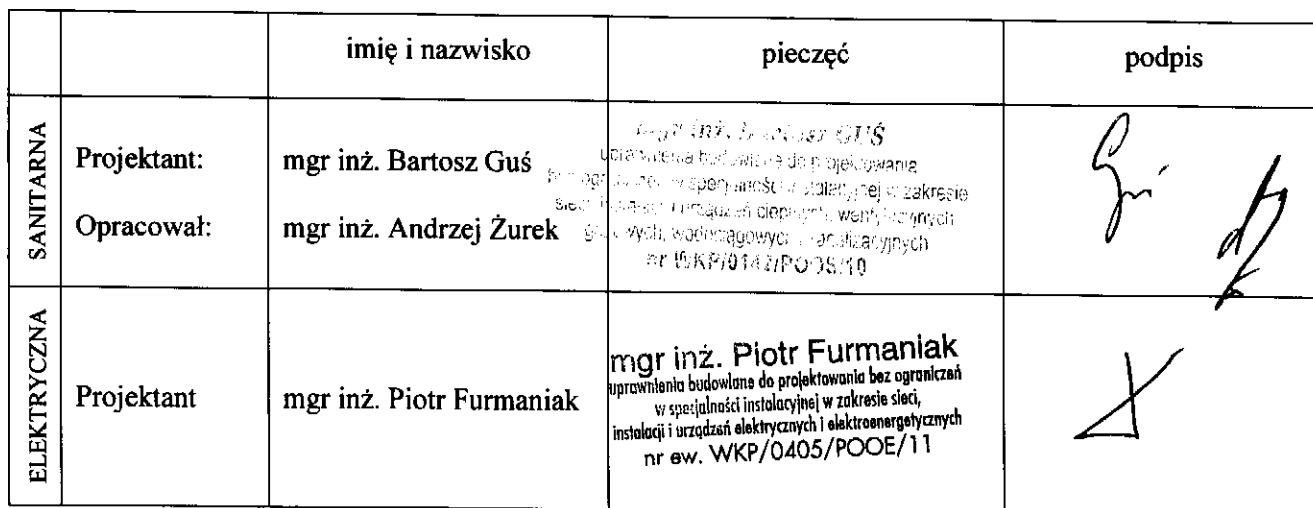 imię i nazwisko
pieczęć
podpis
SANITARNA
Projektant:
mgr inż. Bartosz Guś
Opracował:
mgr inż. Andrzej Żurek
mgr inż. Bartosz GUŚ
uprawnienia budowlane do projektowania
w specjalności instalacyjnej w zakresie
sieci, instalacji i urządzeń cieplnych, wentylacyjnych
gazowych, wodociągowych i kanalizacyjnych
nr WKP/0142/POOS/10
Guś
ELEKTRYCZNA
Projektant
mgr inż. Piotr Furmaniak
mgr inż. Piotr Furmaniak
uprawnienia budowlane do projektowania bez ograniczeń
w specjalności instalacyjnej w zakresie sieci,
instalacji i urządzeń elektrycznych i elektroenergetycznych
nr ew. WKP/0405/POOE/11